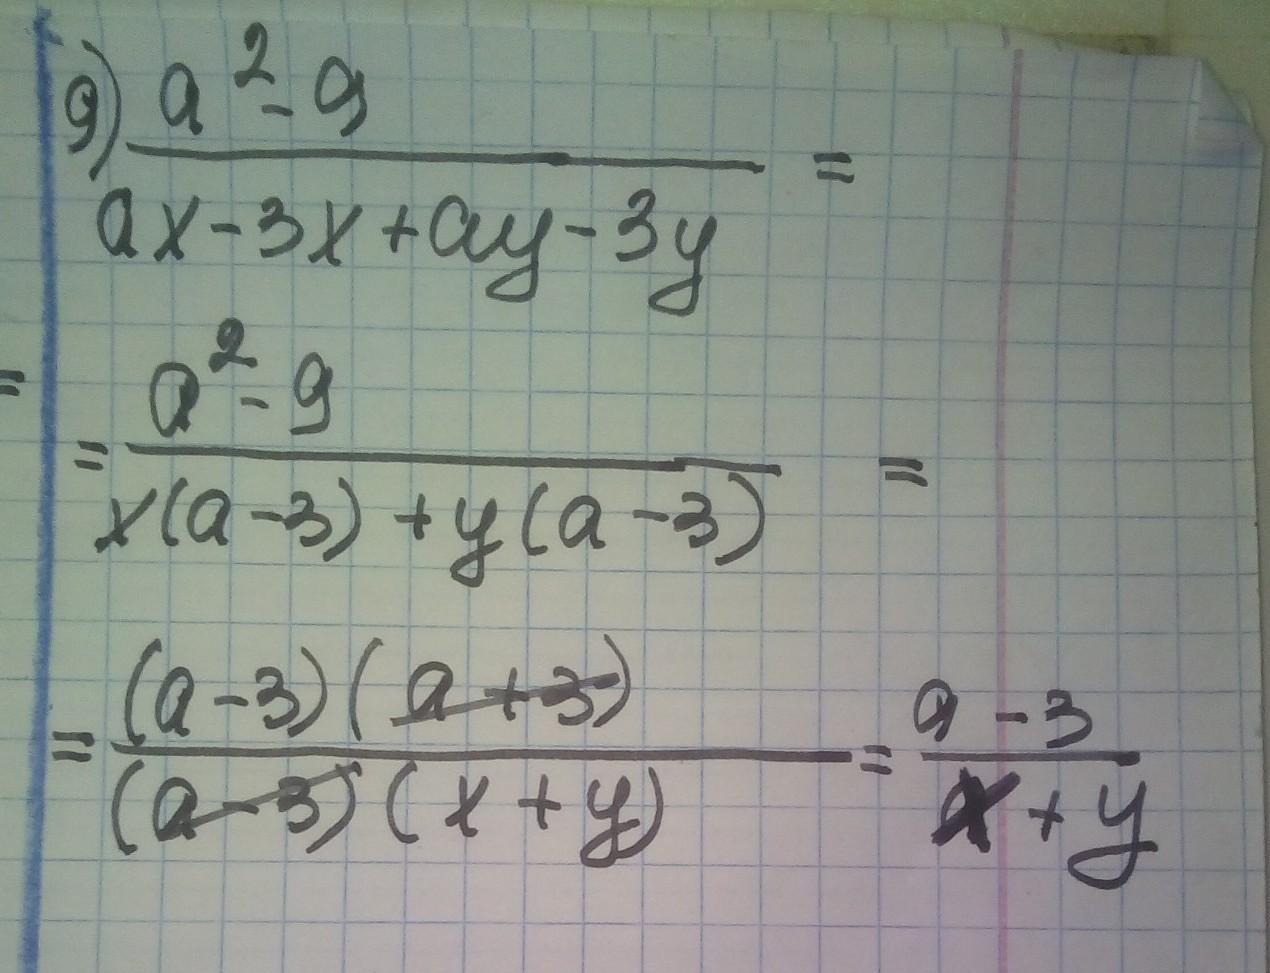 9) a² - 9 / ax - 3x + ay - 3y =
= a² - 9 / x(a - 3) + y(a - 3) =
= (a - 3)(a + 3) / (a - 3)(x + y) = a - 3 / x + y